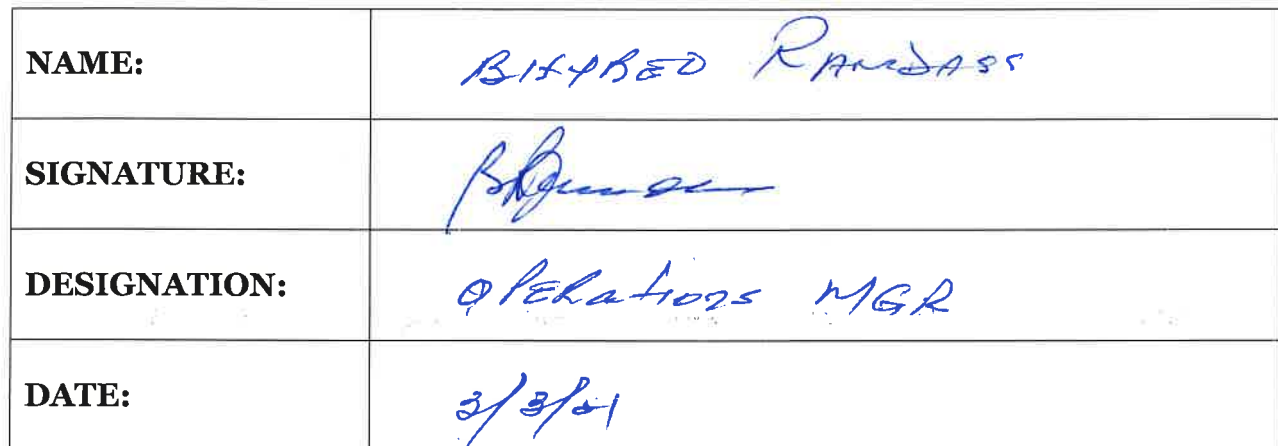 NAME: RAMDASS
SIGNATURE:
DESIGNATION: OPERATIONS MGR
DATE: 3/3/21